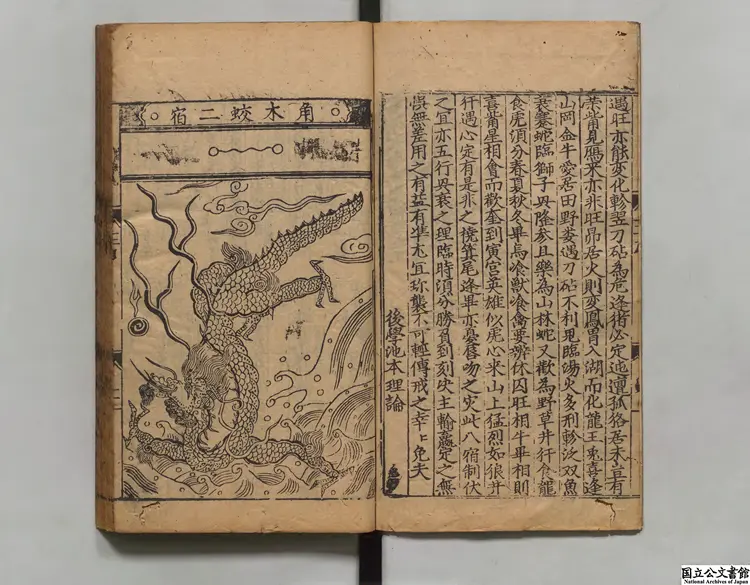 過旺亦能変化軫翌刀砧為危逢術必定迍邅孤狢居未豈有
柴觜見鴈來亦非旺昴居火則变鳳胃入湖而化龍王兎喜逢
山岡金牛愛居田野婁遇刀砧不利鬼臨塲火多刑軫泛双魚
衰寒蛇臨獅子與降參且樂為山林蛇又歡為野草井行食龍
食虎須分春夏秋冬畢烏飡獸飡禽要辨休囚旺相牛畢相則
喜觜星相會而歡奎到寅宮英雄似虎心木山上猛烈如狼井
犴遇心定有是非之撓箕尾逢畢亦憂唇吻之灾此八宿制伏
之宜亦五行與衰之理臨時須分勝負到刻安主輸贏定之無
誤無差用之有益有準尤宜珎襲不可輕傳戒之幸〻免夫
後學池本理論
角木蛟二宿
国立公文書館
National Archives of Japan